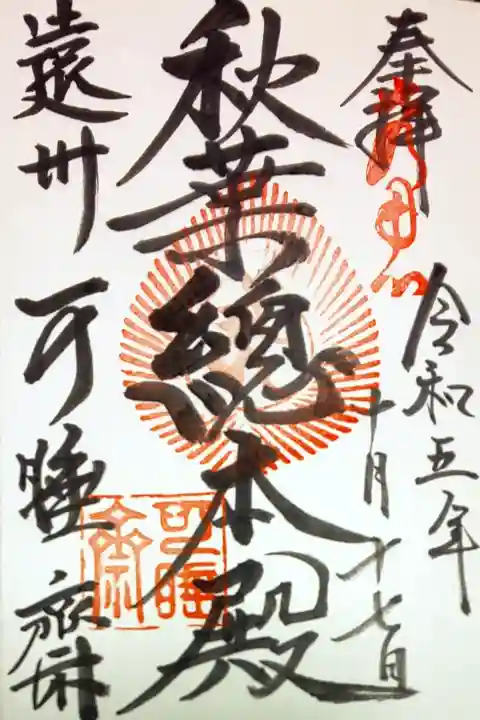 奉拝
令和五年
十月十七日
秋葉總本殿
遠州 可睡齋
可睡齋